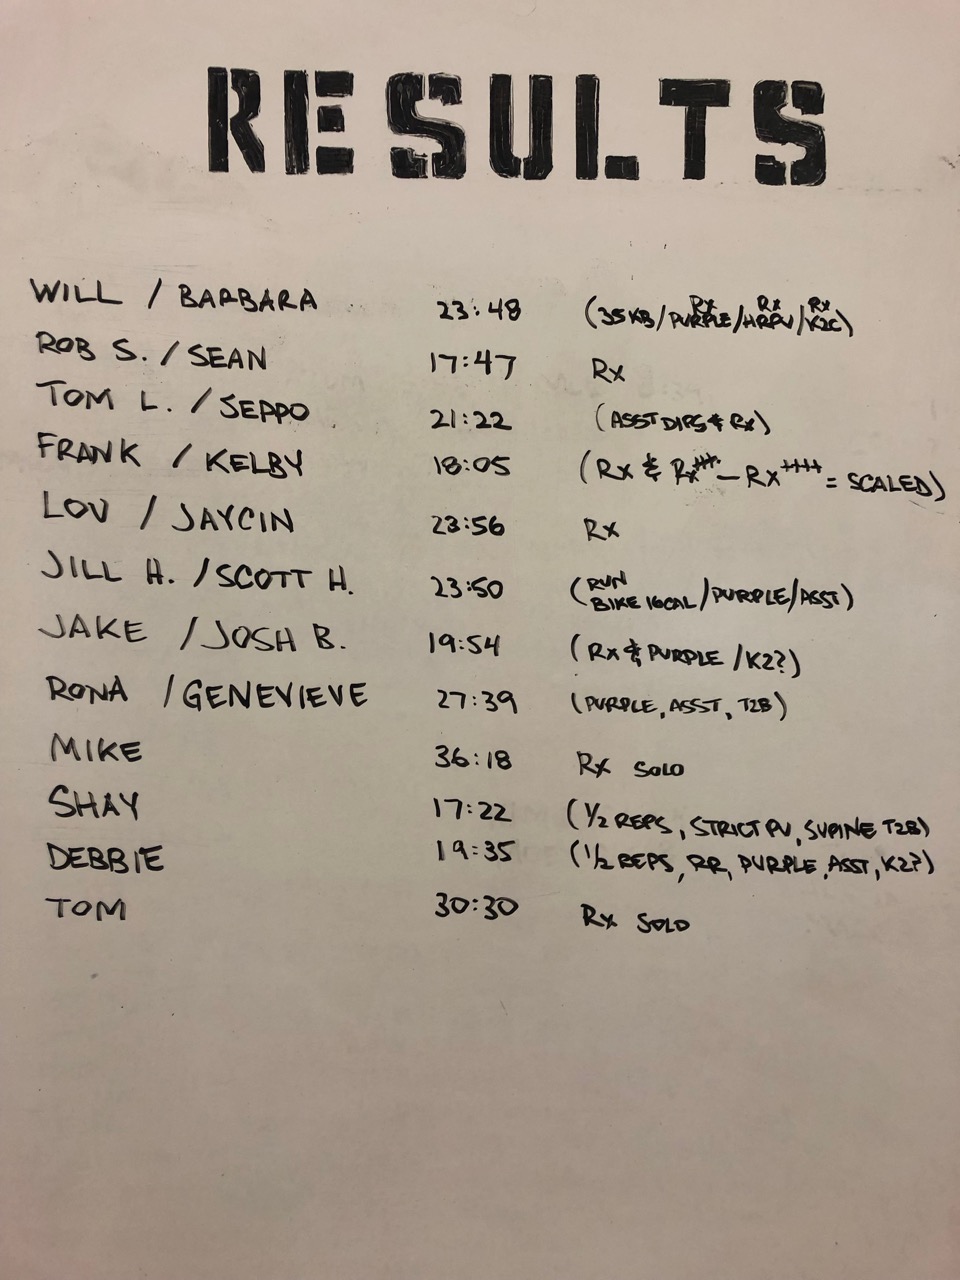 RESULTS
WILL / BARBARA 23:48 (35KB/PURPLE/HRPU/K2C) Rx Rx Rx
ROB S. / SEAN 17:47 Rx
TOM L. / SEPPO 21:22 (ASST DIPS & Rx)
FRANK / KELBY 18:05 (Rx & Rx+++ - Rx++++ = SCALED)
LOU / JAYCIN 23:56 Rx
JILL H. / SCOTT H. 23:50 (RUN BIKE 16CAL/PURPLE/ASST)
JAKE / JOSH B. 19:54 (Rx & PURPLE /K2?)
RONA / GENEVIEVE 27:39 (PURPLE, ASST, T2B)
MIKE 36:18 Rx SOLO
SHAY 17:22 (1/2 REPS, STRICT PU, SUPINE T2B)
DEBBIE 19:35 (1/2 REPS, RR, PURPLE, ASST, K2?)
TOM 30:30 Rx SOLO